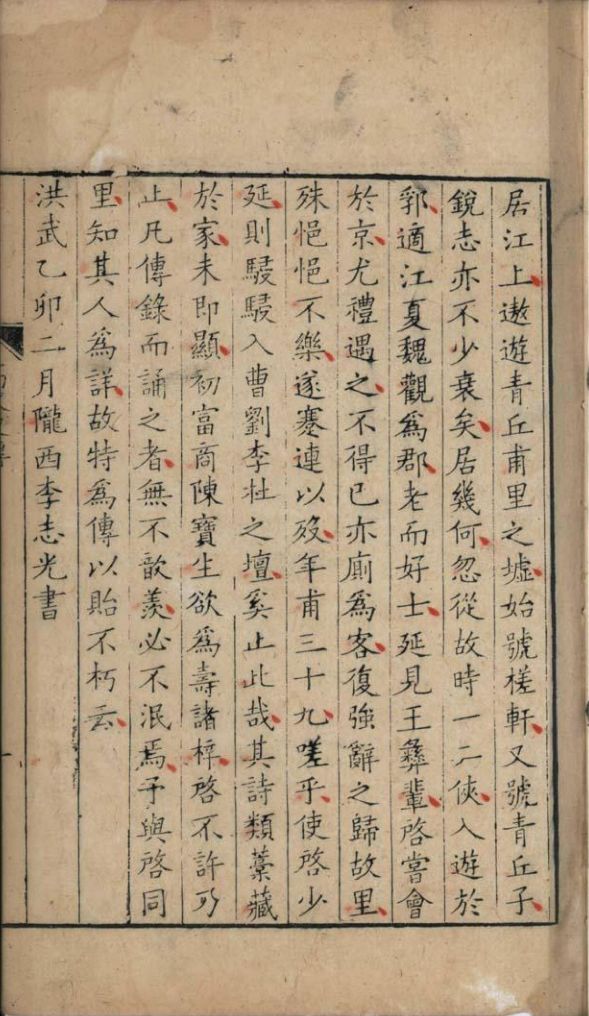 居江上遨遊青丘甫里之墟始號槎軒又號青丘子
銳志亦不少衰矣居幾何忽從故時一二俠入遊於
郛適江夏魏觀爲郡老而好士延見王彝輩啓嘗會
於京尤禮遇之不得已亦廁爲客復強辭之歸故里
殊悒悒不樂遂蹇連以歿年甫三十九嗟乎使啓少
延則駸駸入曹劉李杜之壇奚止此哉其詩類藁藏
於家未即顯初富商陳寶生欲爲壽諸梓啓不許乃
止凡傳錄而誦之者無不歆羨必不泯焉予與啓同
里知其人爲詳故特爲傳以貽不朽云
洪武乙卯二月隴西李志光書